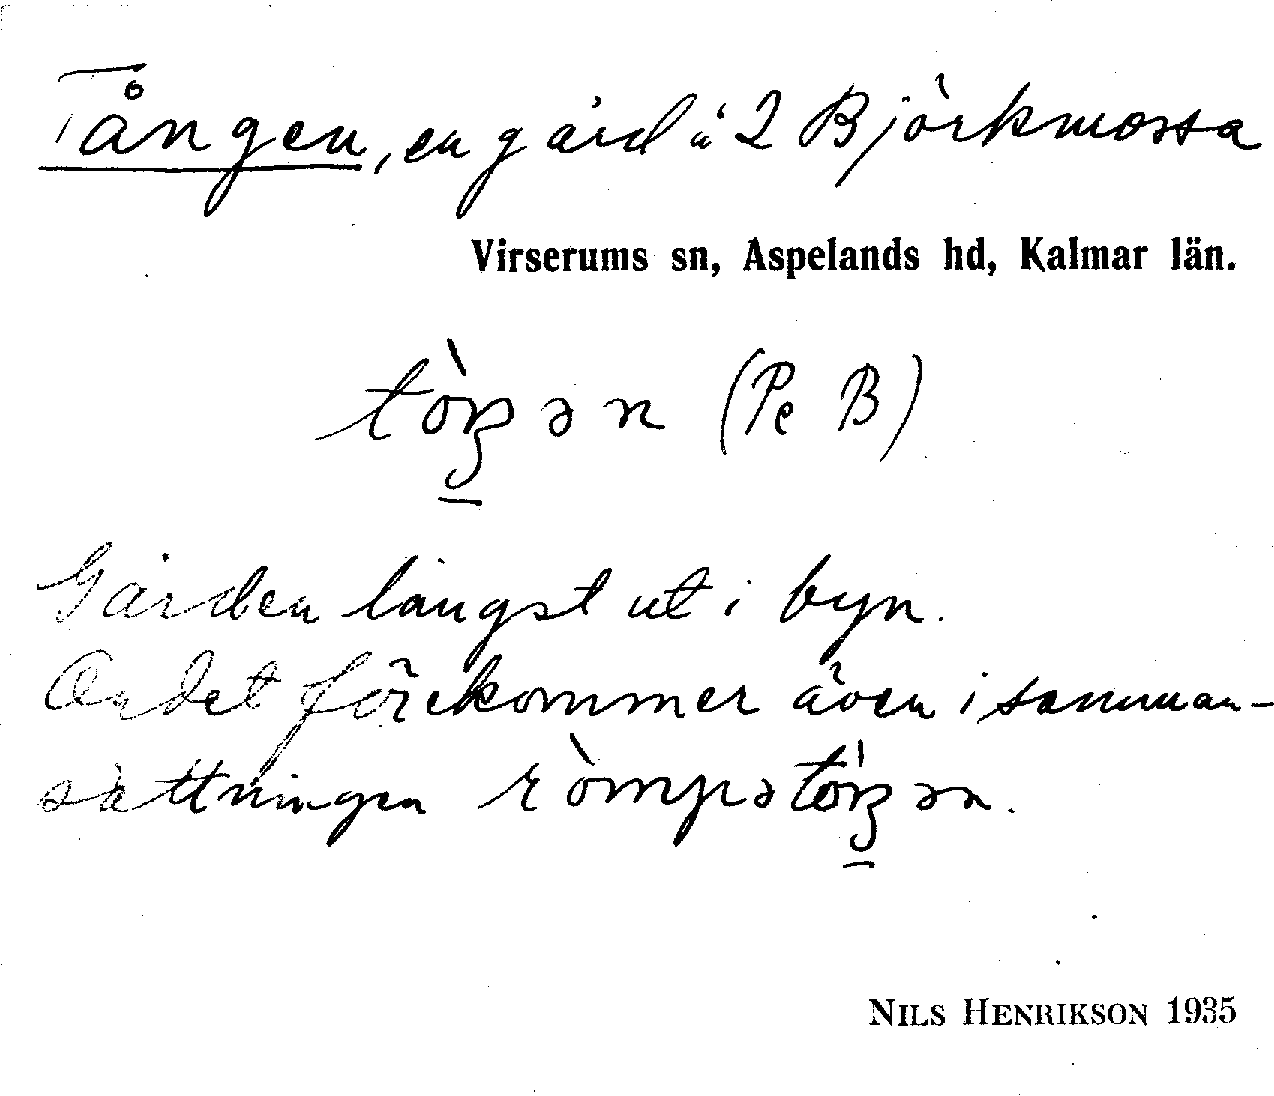 Tången, en gård å 2 Björkmossa
Virserums sn, Aspelands hd, Kalmar län.
tòŋən (Pe B)
Gården längst ut i byn.
Ordet förekommer även i samman-
sättningen ròmpətòŋən.
NILS HENRIKSON 1935